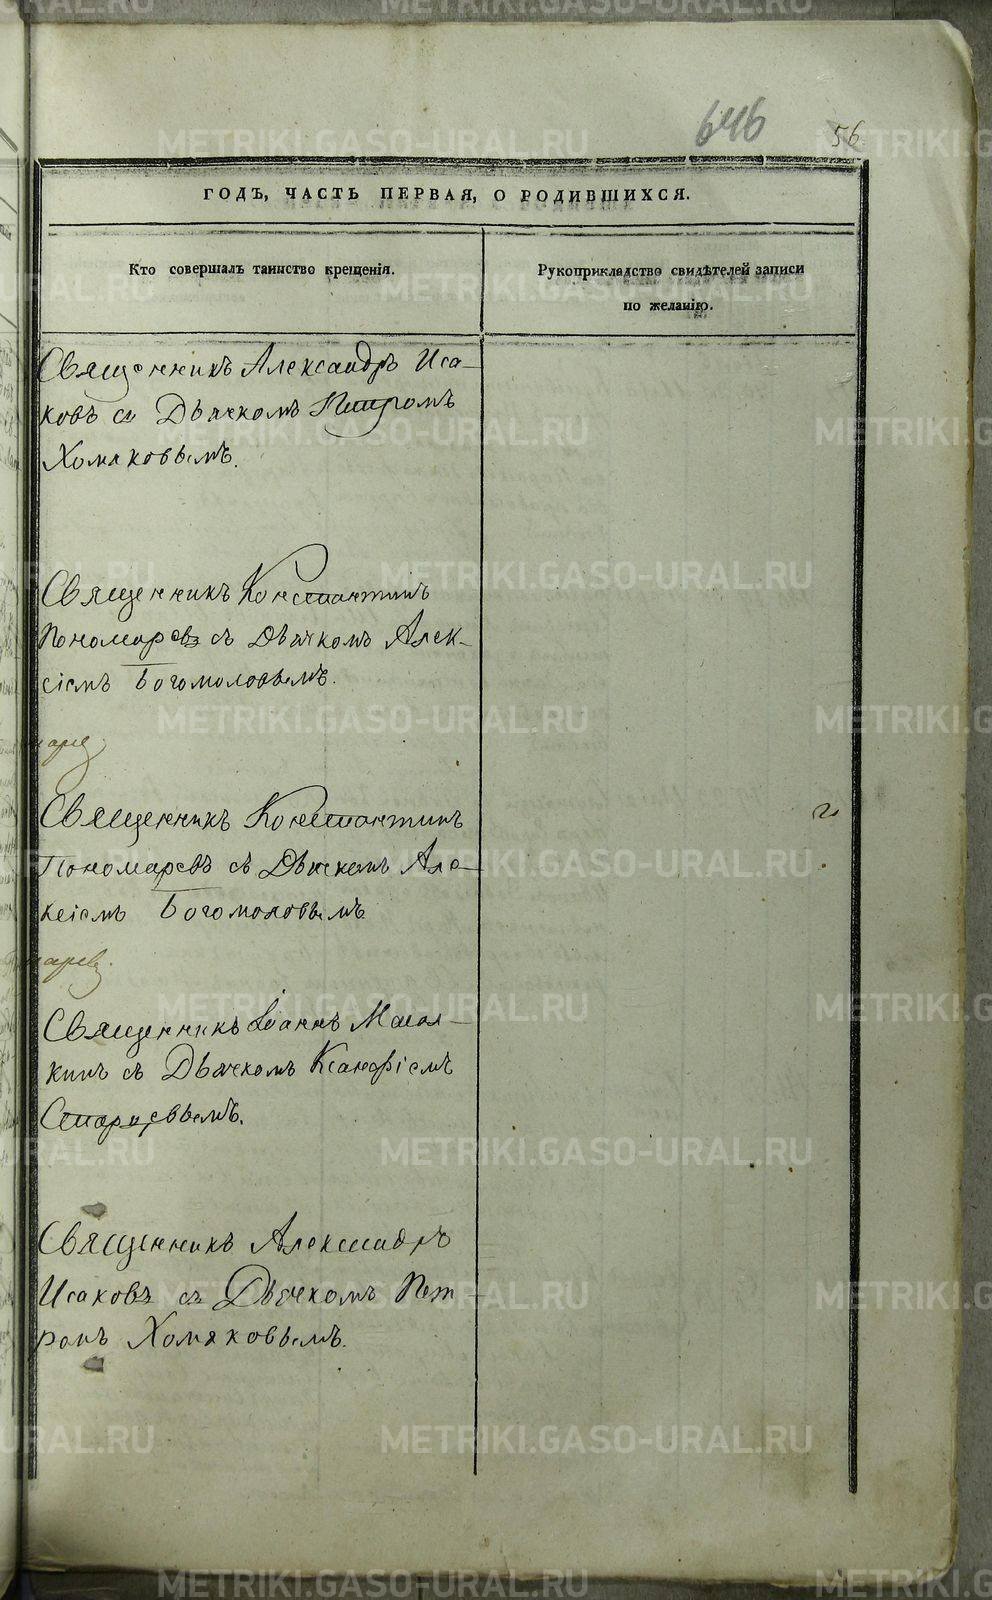 646
56
ГОДЪ, ЧАСТЬ ПЕРВАЯ, О РОДИВШИХСЯ.
Кто совершалъ таинство крещенія.
Рукоприкладство свидѣтелей записи
по желанію.
Священникъ Александръ Иса-
ковъ съ Дьячкомъ Петромъ
Хомяковымъ.
Священникъ Константинъ
Пономаревъ съ Дьячкомъ Алек-
сіемъ Богомоловымъ.
Священникъ Константинъ
Пономаревъ съ Дьячкомъ Але-
ксіемъ Богомоловымъ
Священникъ Іоаннъ
съ Дьячкомъ Ксанфіемъ
Старцевымъ.
Священникъ Александръ
Исаковъ съ Дьячкомъ Пет-
ромъ Хомяковымъ.
METRIKI.GASO-URAL.RU